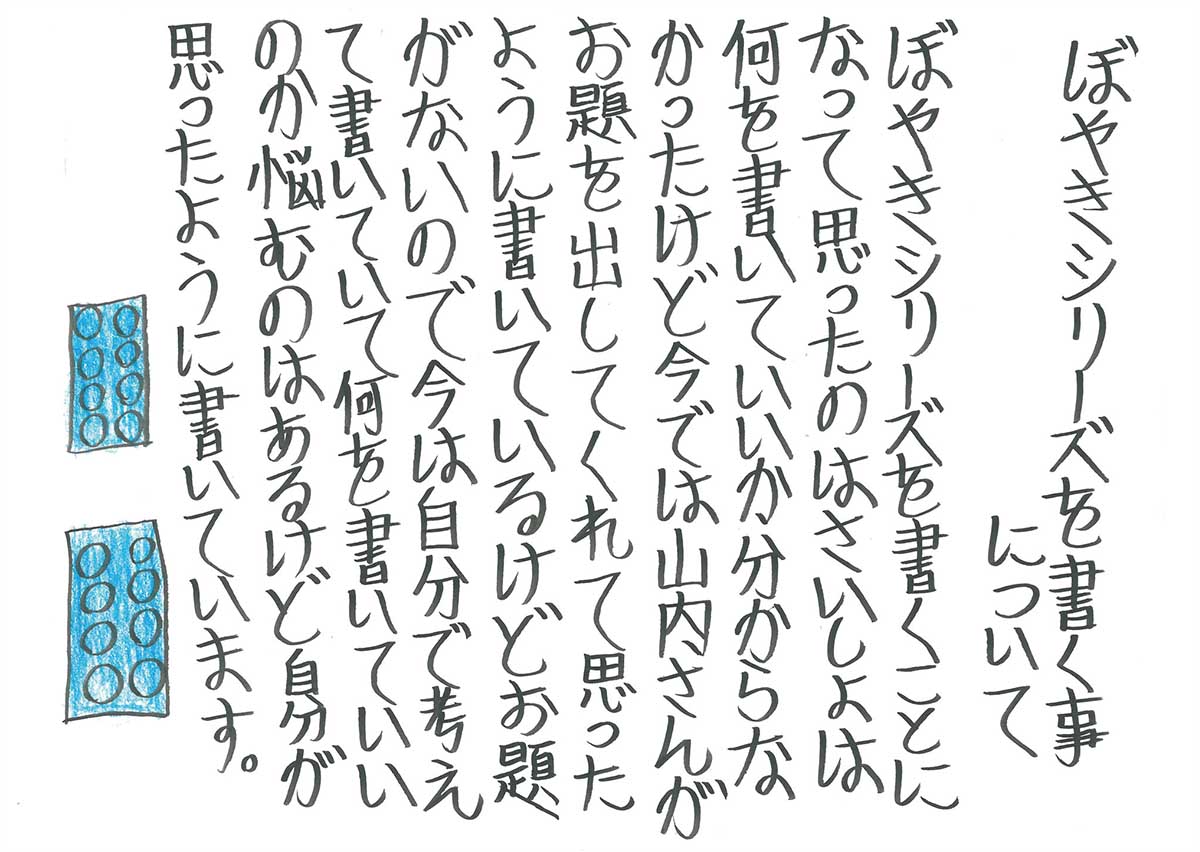 ぼやきシリーズを書く事
について
ぼやきシリーズを書くことに
なって思ったのはさいしょは
何を書いていいか分からな
かったけど今では山内さんが
お題を出してくれて思った
ように書いているけどお題
がないので今は自分で考え
て書いていて何を書いていい
のか悩むのはあるけど自分が
思ったように書いています。